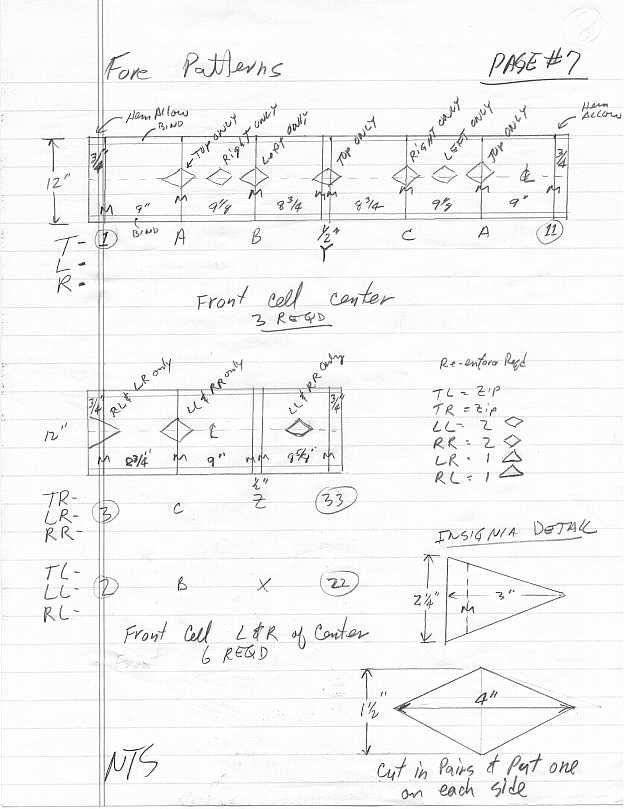 Fore Patterns
PAGE #7
Hem Allow
BIND
TOP ONLY
Right ONLY
Left Only
TOP ONLY
RIGHT ONLY
LEFT ONLY
TOP ONLY
Hem Allow
3/4"
3/4"
12"
M 9" M 9 1/8 M 8 3/4 M M 8 3/4 M 9 1/8 M 9" M
BIND
T- 1 A B 1/2" C A 11
Y
L-
R-
Front Cell center
3 REQD
RL & LR only
LL & RR only
LL & RR Only
3/4"
3/4"
12"
M 8 3/4" M 9" M M M
1/2"
TR- 3 C Z 33
LR-
RR-
TL- 2 B X 22
LL-
RL-
Front Cell L & R of Center
6 REQD
Re-enforce Reqd
TL = Zip
TR = Zip
LL = 2
RR = 2
LR = 1
RL = 1
INSIGNIA DETAIL
2 1/4"
M
3"
1 1/2"
4"
Cut in Pairs & Put one
on each side
NTS